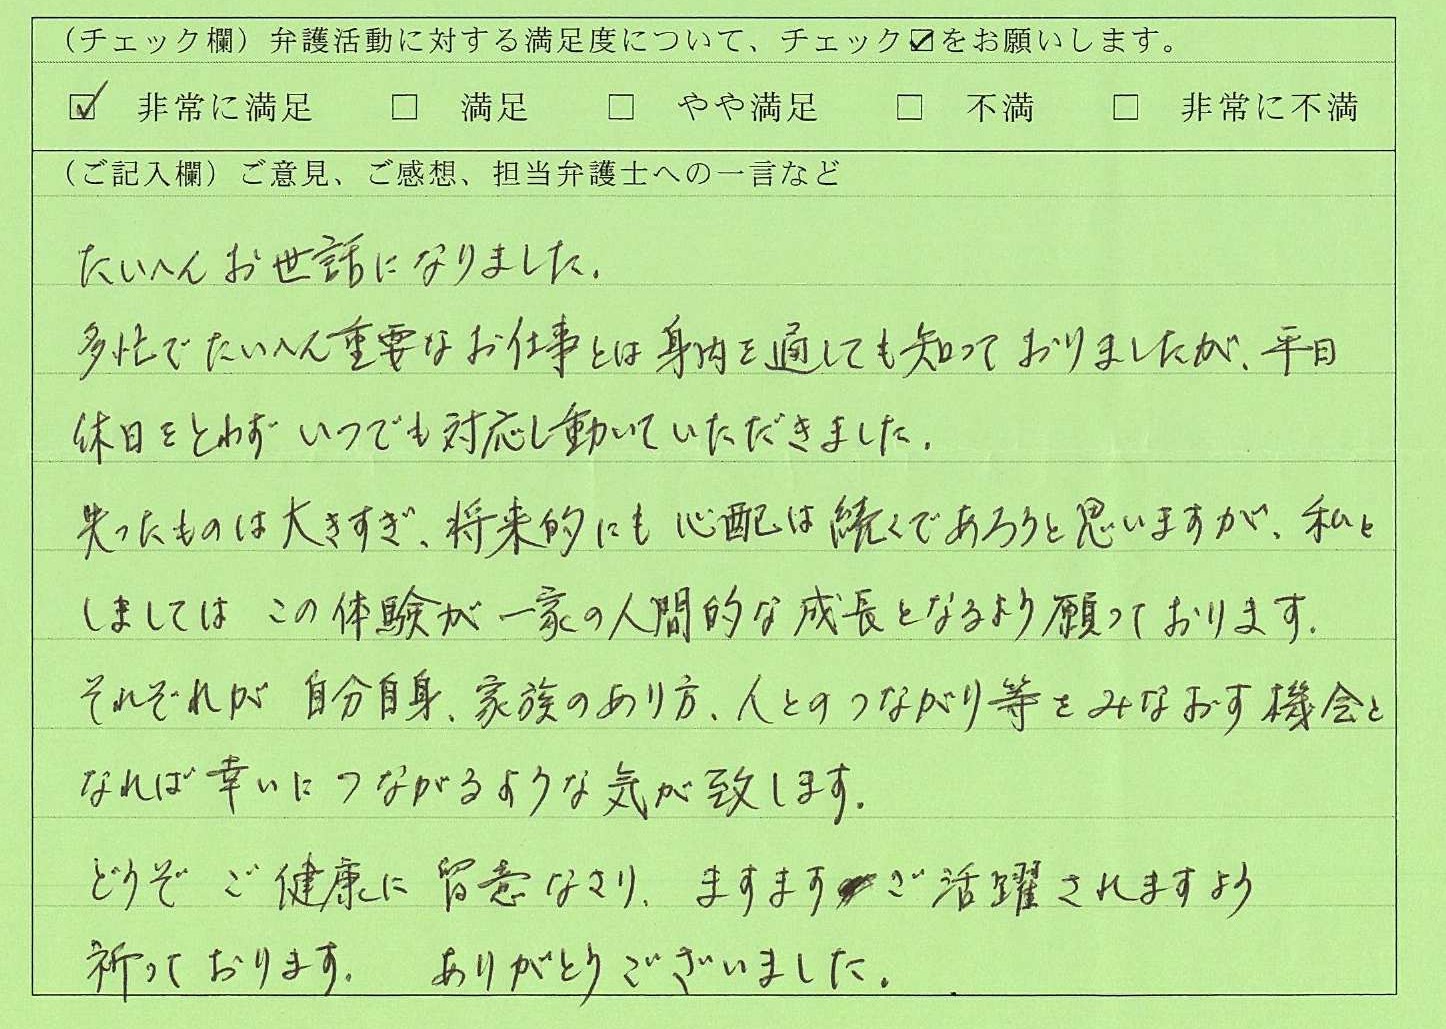 （チェック欄）弁護活動に対する満足度について、チェック☑をお願いします。
☑ 非常に満足 □ 満足 □ やや満足 □ 不満 □ 非常に不満
（ご記入欄）ご意見、ご感想、担当弁護士への一言など
たいへんお世話になりました。
多忙でたいへん重要なお仕事とは身内を通しても知っておりましたが、平日
休日をとわずいつでも対応し動いていただきました。
失ったものは大きすぎ、将来的にも心配は続くであろうと思いますが、私と
しましてはこの体験が一家の人間的な成長となるよう願っております。
それぞれが自分自身、家族のあり方、人とのつながり等をみなおす機会と
なれば幸いにつながるような気が致します。
どうぞご健康に留意なさり、ますますご活躍されますよう
祈っております。 ありがとうございました。